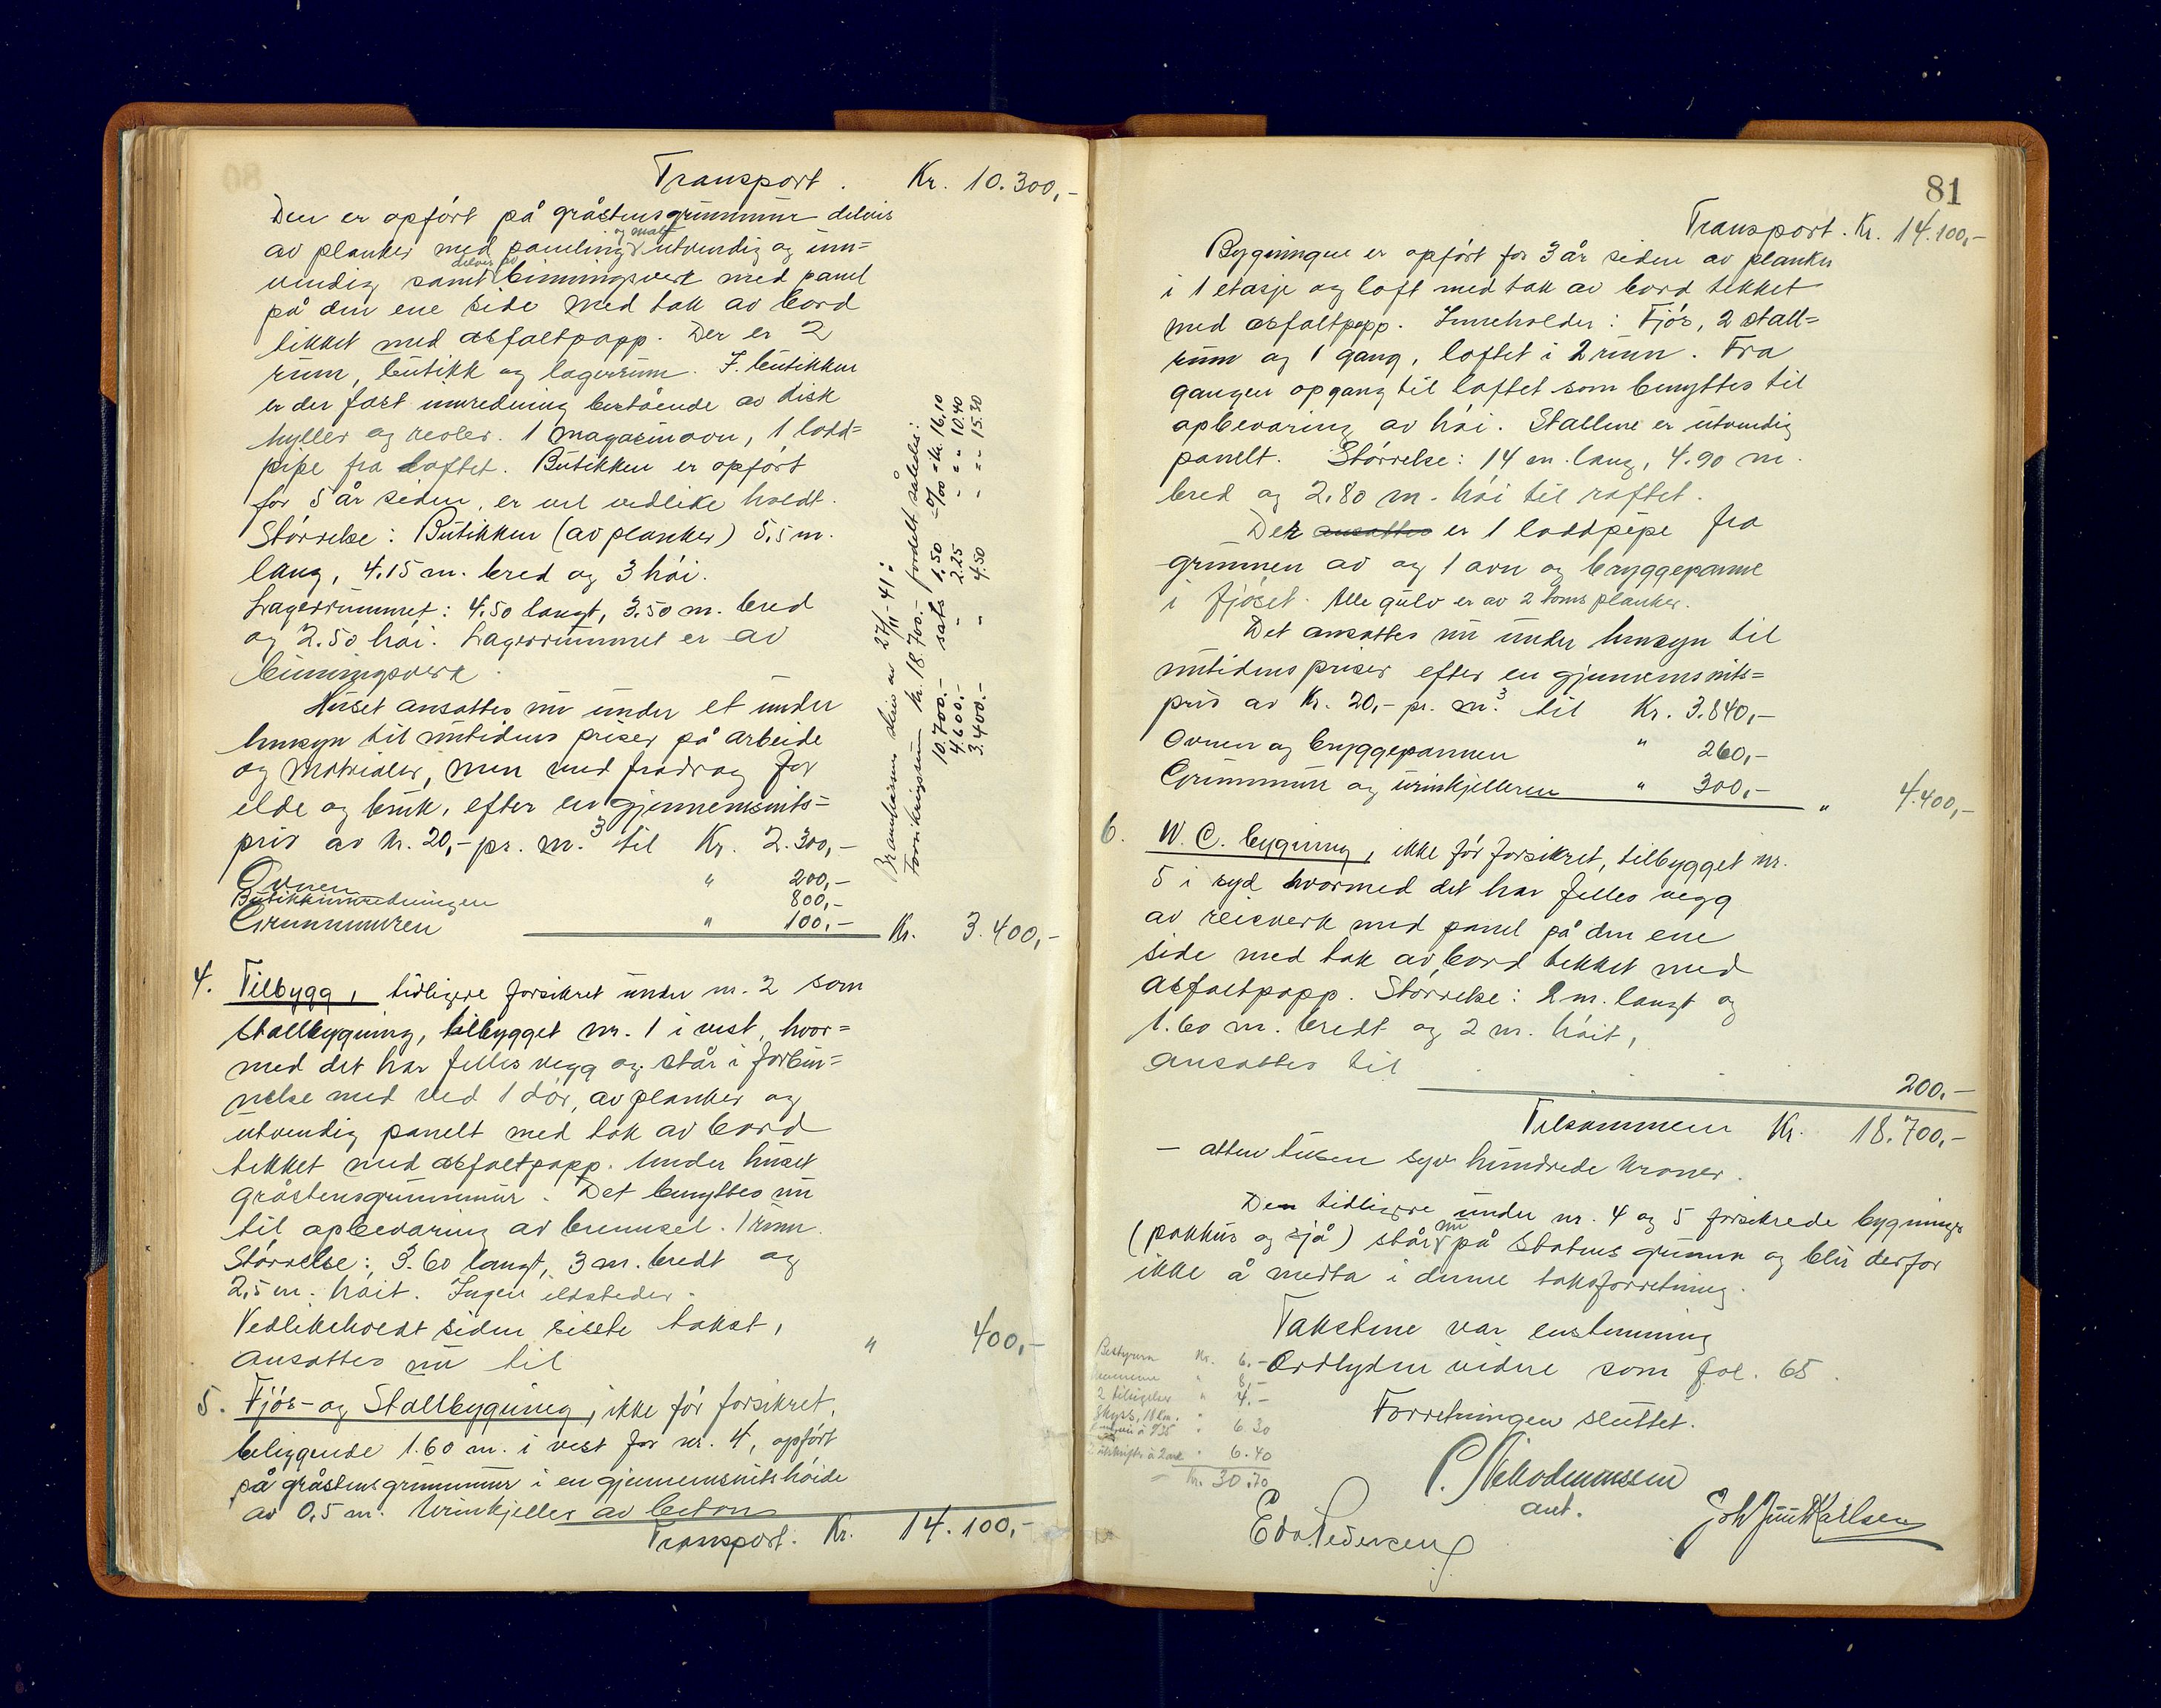 Transport. Kr. 10.300,-
Den er opført på gråstensgrunnmur delvis
av planker med paneling og malt utvendig og inn=
vendig samt delvis av binningsverk med panel
på den ene side med tak av bord
tekket med asfaltpapp. Der er 2
rum, butikk og lagerrum. I butikken
er der fast innredning bestående av disk
hyller og reoler. 1 magasinovn, 1 lodd=
pipe fra loftet. Butikken er opført
for 5 år siden, er vel vedlike holdt.
Størrelse: Butikken (av planker) 5,5 m.
lang, 4.15 m. bred og 3 høi.
Lagerrummet: 4.50 langt, 3.50 m. bred
og 2.50 høi. Lagerrummet er av
binningsverk.
Huset ansattes nu under et under
hensyn til nutidens priser på arbeide
og materialer, men med fradrag for
elde og bruk, efter en gjennemsnits=
pris av kr. 20,- pr. m.3 til Kr. 2.300,-
Ovnen " 200,-
Butikkinnredningen 800,-
Grunnmuren " 100,- Kr. 3.400,-
4. Tilbygg, tidligere forsikret under nr. 2 som
stallbygning, tilbygget nr. 1 i vest, hvor=
med det har felles vegg og står i forbin=
nelse med ved 1 dør, av planker og
utvendig panelt med tak av bord
tekket med asfaltpapp. Under huset
gråstensgrunnmur. Det benyttes nu
til opbevaring av brensel. 1 rum.
Størrelse: 3.60 langt, 3 m. bredt og
2,5 m. høit. Ingen ildsteder.
Vedlikeholdt siden siste takst,
ansattes nu til " 400,-
5. Fjøs- og Stallbygning, ikke før forsikret,
beliggende 1.60 m. i vest for nr. 4, opført
på gråstensgrunnmur i en gjennemsnitshøide
av 0,5 m. Urinkjeller av betong
Transport. Kr. 14.100,-
Brannkassens skriv av 27/11-41:
Forsikringssum kr. 18.700.- fordelt således:
10.700.- sats 1,50 o/oo = kr. 16,10
4.600.- " 2.25 " = " 10.40
3.400.- " 4.50 " = " 15.30
81
Transport. Kr. 14.100,-
Bygningen er opført for 3 år siden av planker
i 1 etasje og loft med tak av bord tekket
med asfaltpapp. Inneholder: Fjøs, 2 stall=
rum og 1 gang, loftet i 2 rum. Fra
gangen opgang til loftet som benyttes til
opbevaring av høi. Stallene er utvendig
panelt. Størrelse: 14 m. lang, 4.90 m.
bred og 2.80 m. høi til raftet.
Der ansattes er 1 loddpipe fra
grunnen av og 1 ovn og bryggepanne
i fjøset. Alle gulv er av 2 toms planker.
Det ansattes nu under hensyn til
nutidens priser efter en gjennemsnits=
pris av Kr. 20,- pr. m.3 til Kr. 3.840,-
Ovnen og bryggepannen " 260,-
Grunnmur og urinkjelleren " 300,- " 4.400,-
6. W.C. bygning, ikke før forsikret, tilbygget nr.
5 i syd hvormed det har felles vegg
av reisverk med panel på den ene
side med tak av bord tekket med
asfaltpapp. Størrelse: 2 m. langt og
1.60 m. bredt og 2 m. høit,
ansattes til 200.-
Tilsammen Kr. 18.700,-
- atten tusen syv hundrede kroner.
Den tidligere under nr. 4 og 5 forsikrede bygninger
(pakkhus og sjå) står nu på Statens grunn og blir derfor
ikke å medta i denne taksforretning.
Takstene var enstemmig
Ordlyden videre som fol. 65.
Forretningen sluttet.
Bestyreren Kr. 6,-
Mennene " 8,-
2 tilsigelser " 4.-
Skyss, 18 km. " 6.30
2 utskrifter à 2 " 6.40
Kr. 30.70
P. Nikodemussen
ant.
Edv. Pedersen
Joh Juul Karlsen